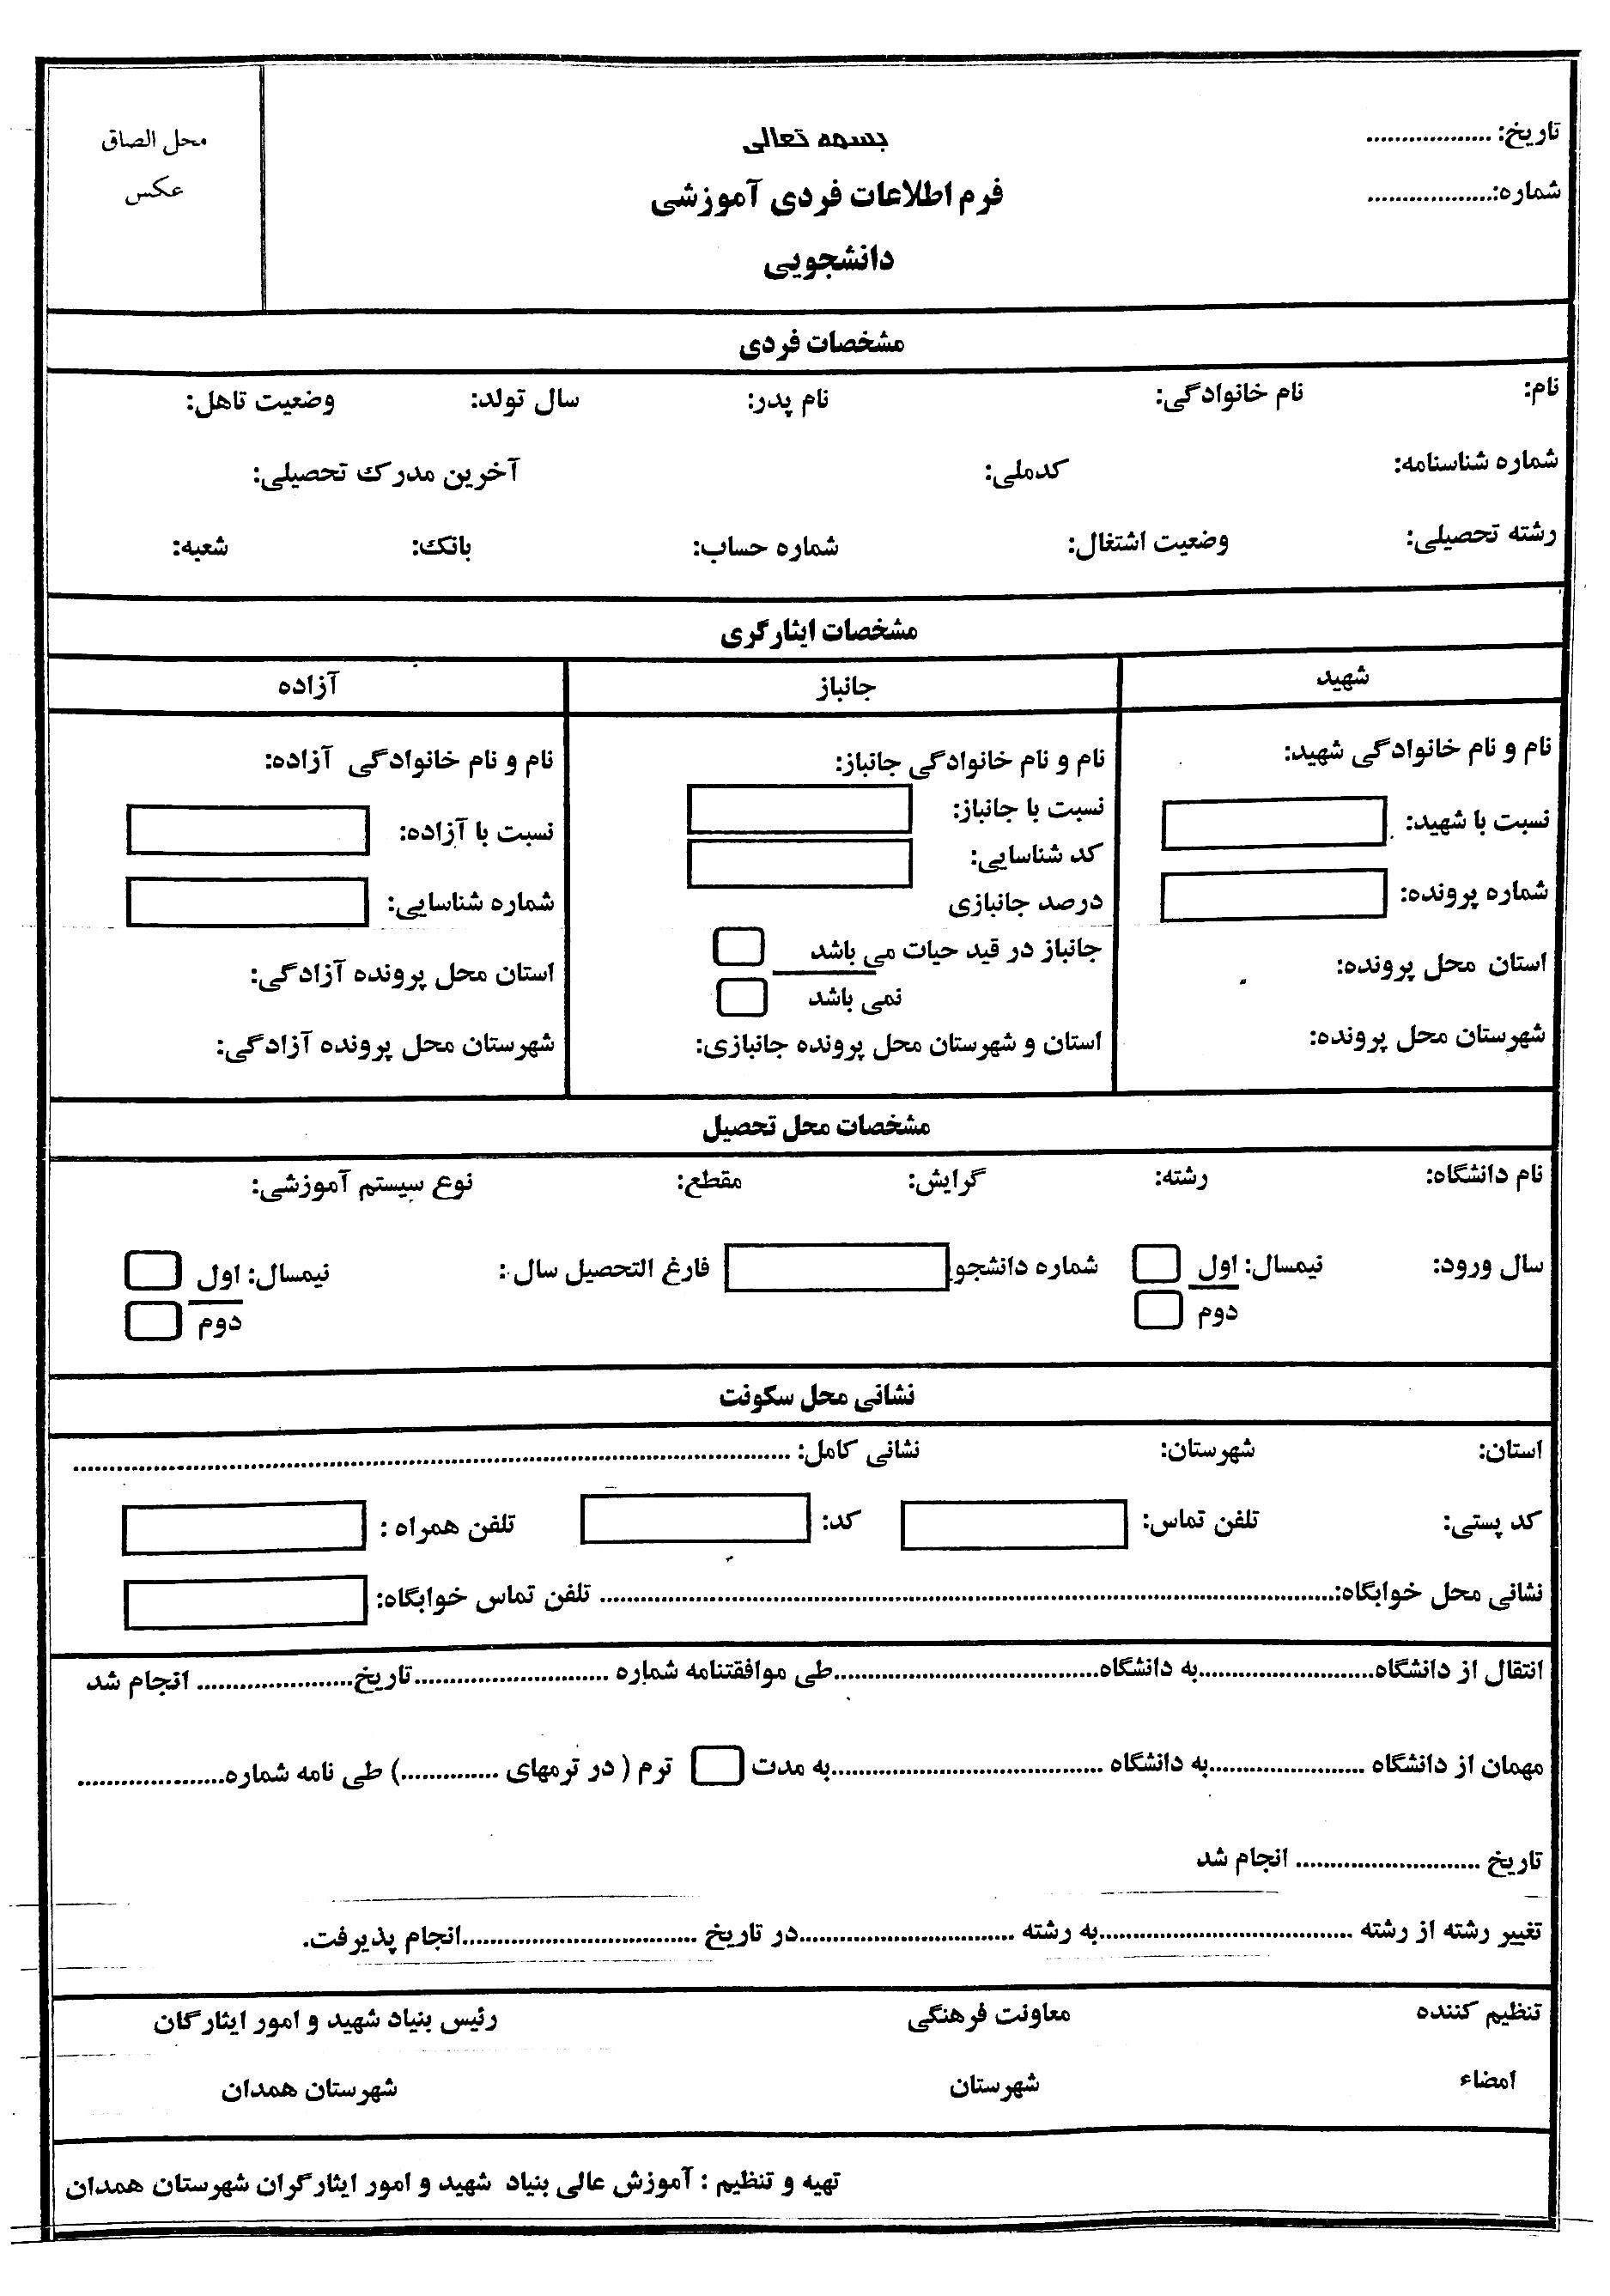 تاریخ: ..................
شماره:..................
بسمه تعالی
فرم اطلاعات فردی آموزشی
دانشجویی
محل الصاق
عکس
مشخصات فردی
نام: نام خانوادگی: نام پدر: سال تولد: وضعیت تاهل:
شماره شناسنامه: کدملی: آخرین مدرک تحصیلی:
رشته تحصیلی: وضعیت اشتغال: شماره حساب: بانک: شعبه:
مشخصات ایثارگری
شهید
نام و نام خانوادگی شهید:
نسبت با شهید:
شماره پرونده:
استان محل پرونده:
شهرستان محل پرونده:
جانباز
نام و نام خانوادگی جانباز:
نسبت با جانباز:
کد شناسایی:
درصد جانبازی
جانباز در قید حیات می باشد
نمی باشد
استان و شهرستان محل پرونده جانبازی:
آزاده
نام و نام خانوادگی آزاده:
نسبت با آزاده:
شماره شناسایی:
استان محل پرونده آزادگی:
شهرستان محل پرونده آزادگی:
مشخصات محل تحصیل
نام دانشگاه: رشته: گرایش: مقطع: نوع سیستم آموزشی:
سال ورود: نیمسال: اول شماره دانشجو فارغ التحصیل سال : نیمسال: اول
دوم دوم
نشانی محل سکونت
استان: شهرستان: نشانی کامل: ..........................................................................................
کد پستی: تلفن تماس: کد: تلفن همراه :
نشانی محل خوابگاه:.......................................................................................... تلفن تماس خوابگاه:
انتقال از دانشگاه........................به دانشگاه..................................طی موافقتنامه شماره ..........................تاریخ..................... انجام شد
مهمان از دانشگاه .....................به دانشگاه .....................................به مدت ترم ( در ترمهای .............) طی نامه شماره....................
تاریخ ......................... انجام شد
تغییر رشته از رشته ..................................به رشته .............................در تاریخ ................................انجام پذیرفت.
تنظیم کننده معاونت فرهنگی رئیس بنیاد شهید و امور ایثارگان
امضاء شهرستان شهرستان همدان
تهیه و تنظیم : آموزش عالی بنیاد شهید و امور ایثارگران شهرستان همدان